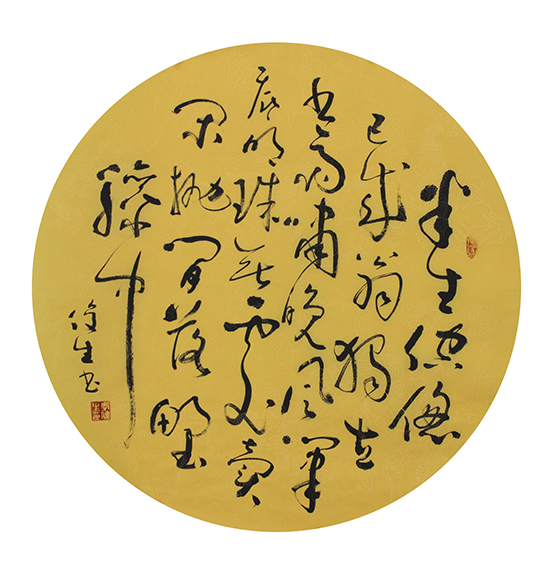 半生倥偬
已成翁獨立
書齋嘯晚風筆
底明珠無處賣
閒拋閒落野
藤中
生書